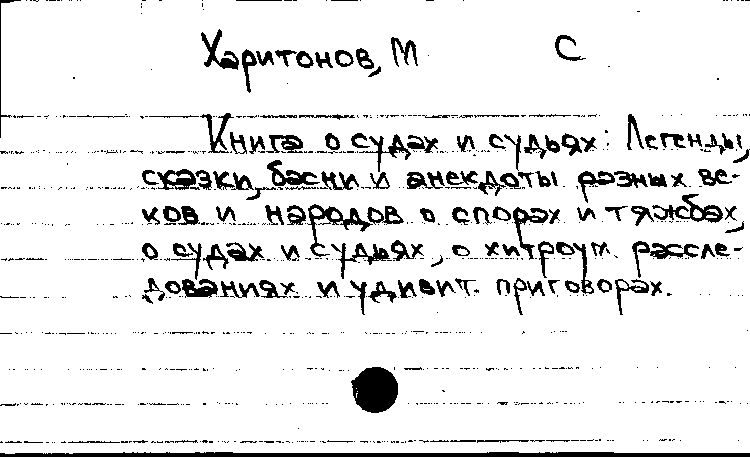 Харитонов, М С
Книга о судах и судьях: Легенды,
сказки, басни и анекдоты разных ве-
ков и народов о спорах и тяжбах,
о судах и судьях, о хитроум. рассле-
дованиях и удивит. приговорах.